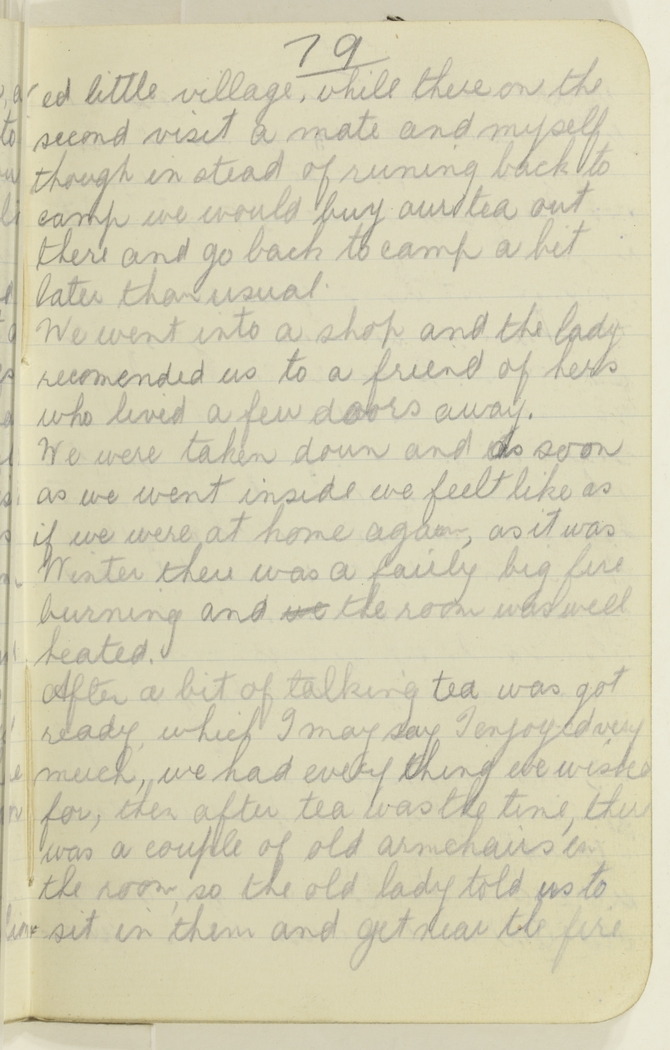 79
ed little village, while there on the
second visit a mate and myself
though in stead of runing back to
camp we would buy our tea out
there and go back to camp a bit
later than usual.
We went into a shop and the lady
recomended us to a friend of hers
who lived a few doors away.
We were taken down and as soon
as we went inside we feelt like as
if we were at home again, as it was
Winter there was a fairly big fire
burning and we the room was well
heated.
After a bit of talking tea was got
ready, which I may say I enjoyed very
much, we had every thing we wished
for, then after tea was the time, there
was a couple of old armchairs in
the room, so the old lady told us to
sit in them and get near the fire